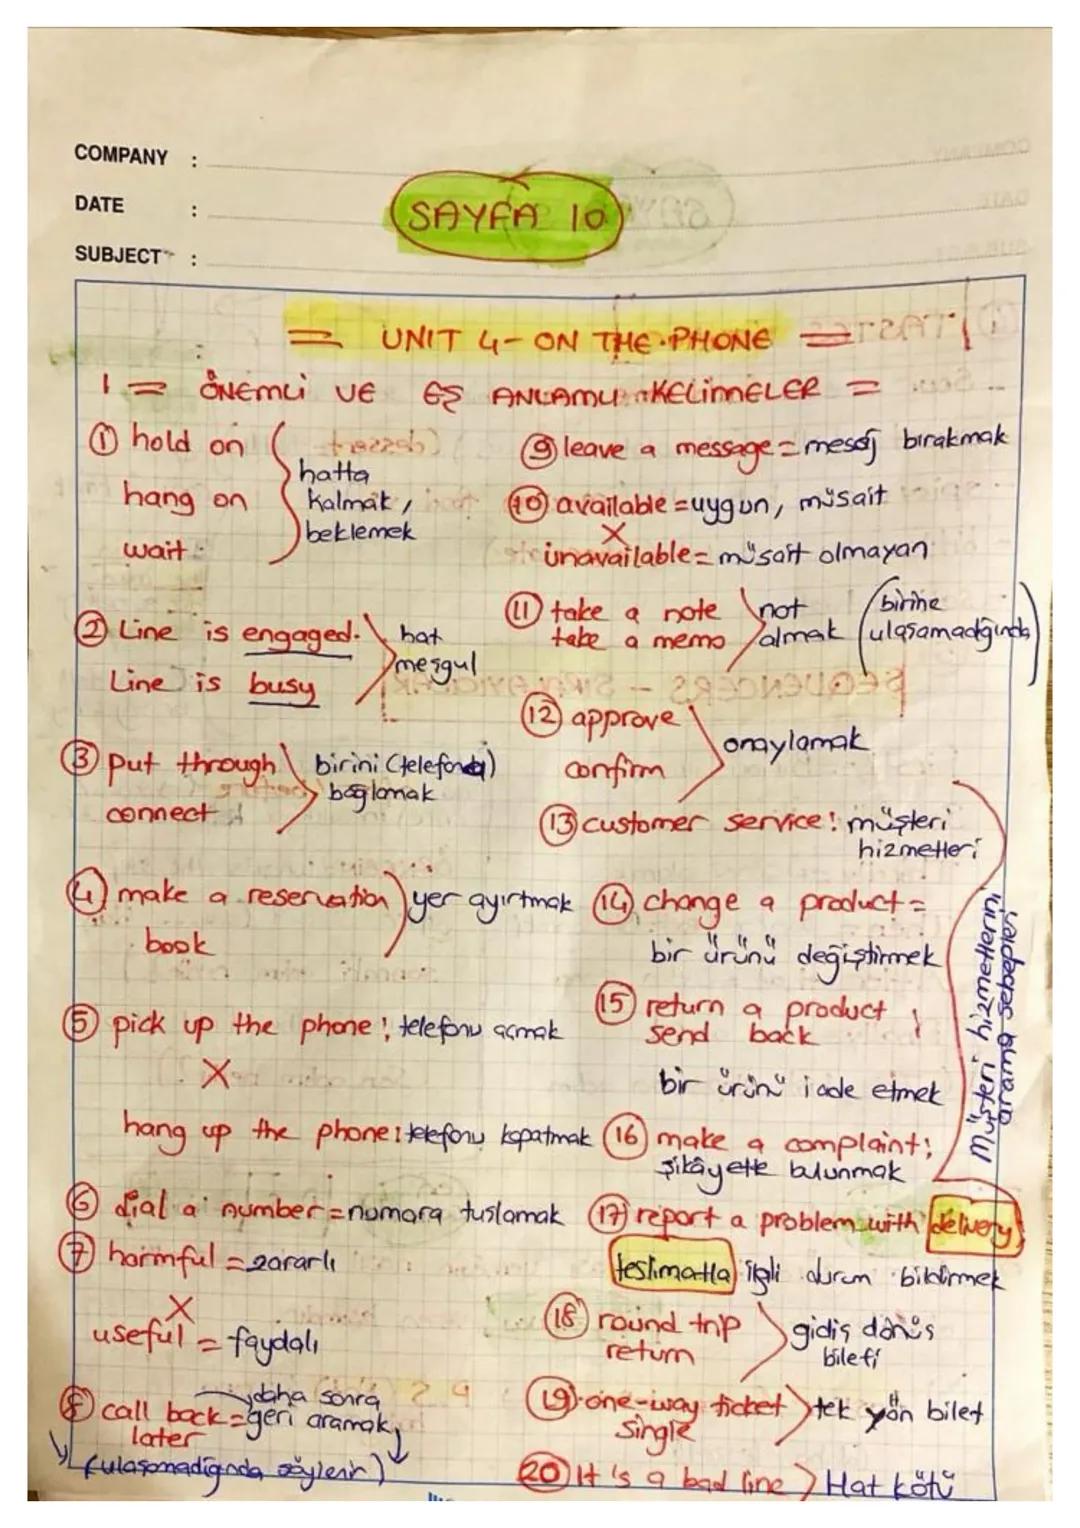 COMPANY :
DATE :
SUBJECT :
SAYFA 10
= UNIT 4- ON THE PHONE =
1 = ÖNEMLİ VE EŞ ANLAMLI KELİMELER =
① hold on
hang on
wait
hatta
kalmak,
beklemek
② Line is engaged.
Line is busy
hat
meşgul
③ put through
connect
birini (telefonda)
bağlamak
④ make a reservation
book
yer ayırtmak
⑤ pick up the phone: telefonu açmak
X
hang up the phone: telefonu kapatmak
⑥ dial a number = numara tuşlamak
⑦ harmful = zararlı
X
useful = faydalı
⑧ call back = geri aramak,
later
daha sonra
(ulaşamadığında söylenir)
⑨ leave a message = mesaj bırakmak
⑩ available = uygun, müsait
X
unavailable = müsait olmayan
⑪ take a note
take a memo
not
almak
(birine
ulaşamadığında)
⑫ approve
confirm
onaylamak
⑬ customer service: müşteri
hizmetleri
⑭ change a product =
bir ürünü değiştirmek
⑮ return a product
send back
bir ürünü iade etmek
⑯ make a complaint:
şikâyette bulunmak
⑰ report a problem with delivery
teslimatla ilgili durum bildirmek
Müşteri hizmetlerini
arama sebepleri
⑱ round trip
return
gidiş dönüş
bileti
⑲ one-way ticket
single
tek yön bilet
⑳ It's a bad line
Hat kötü